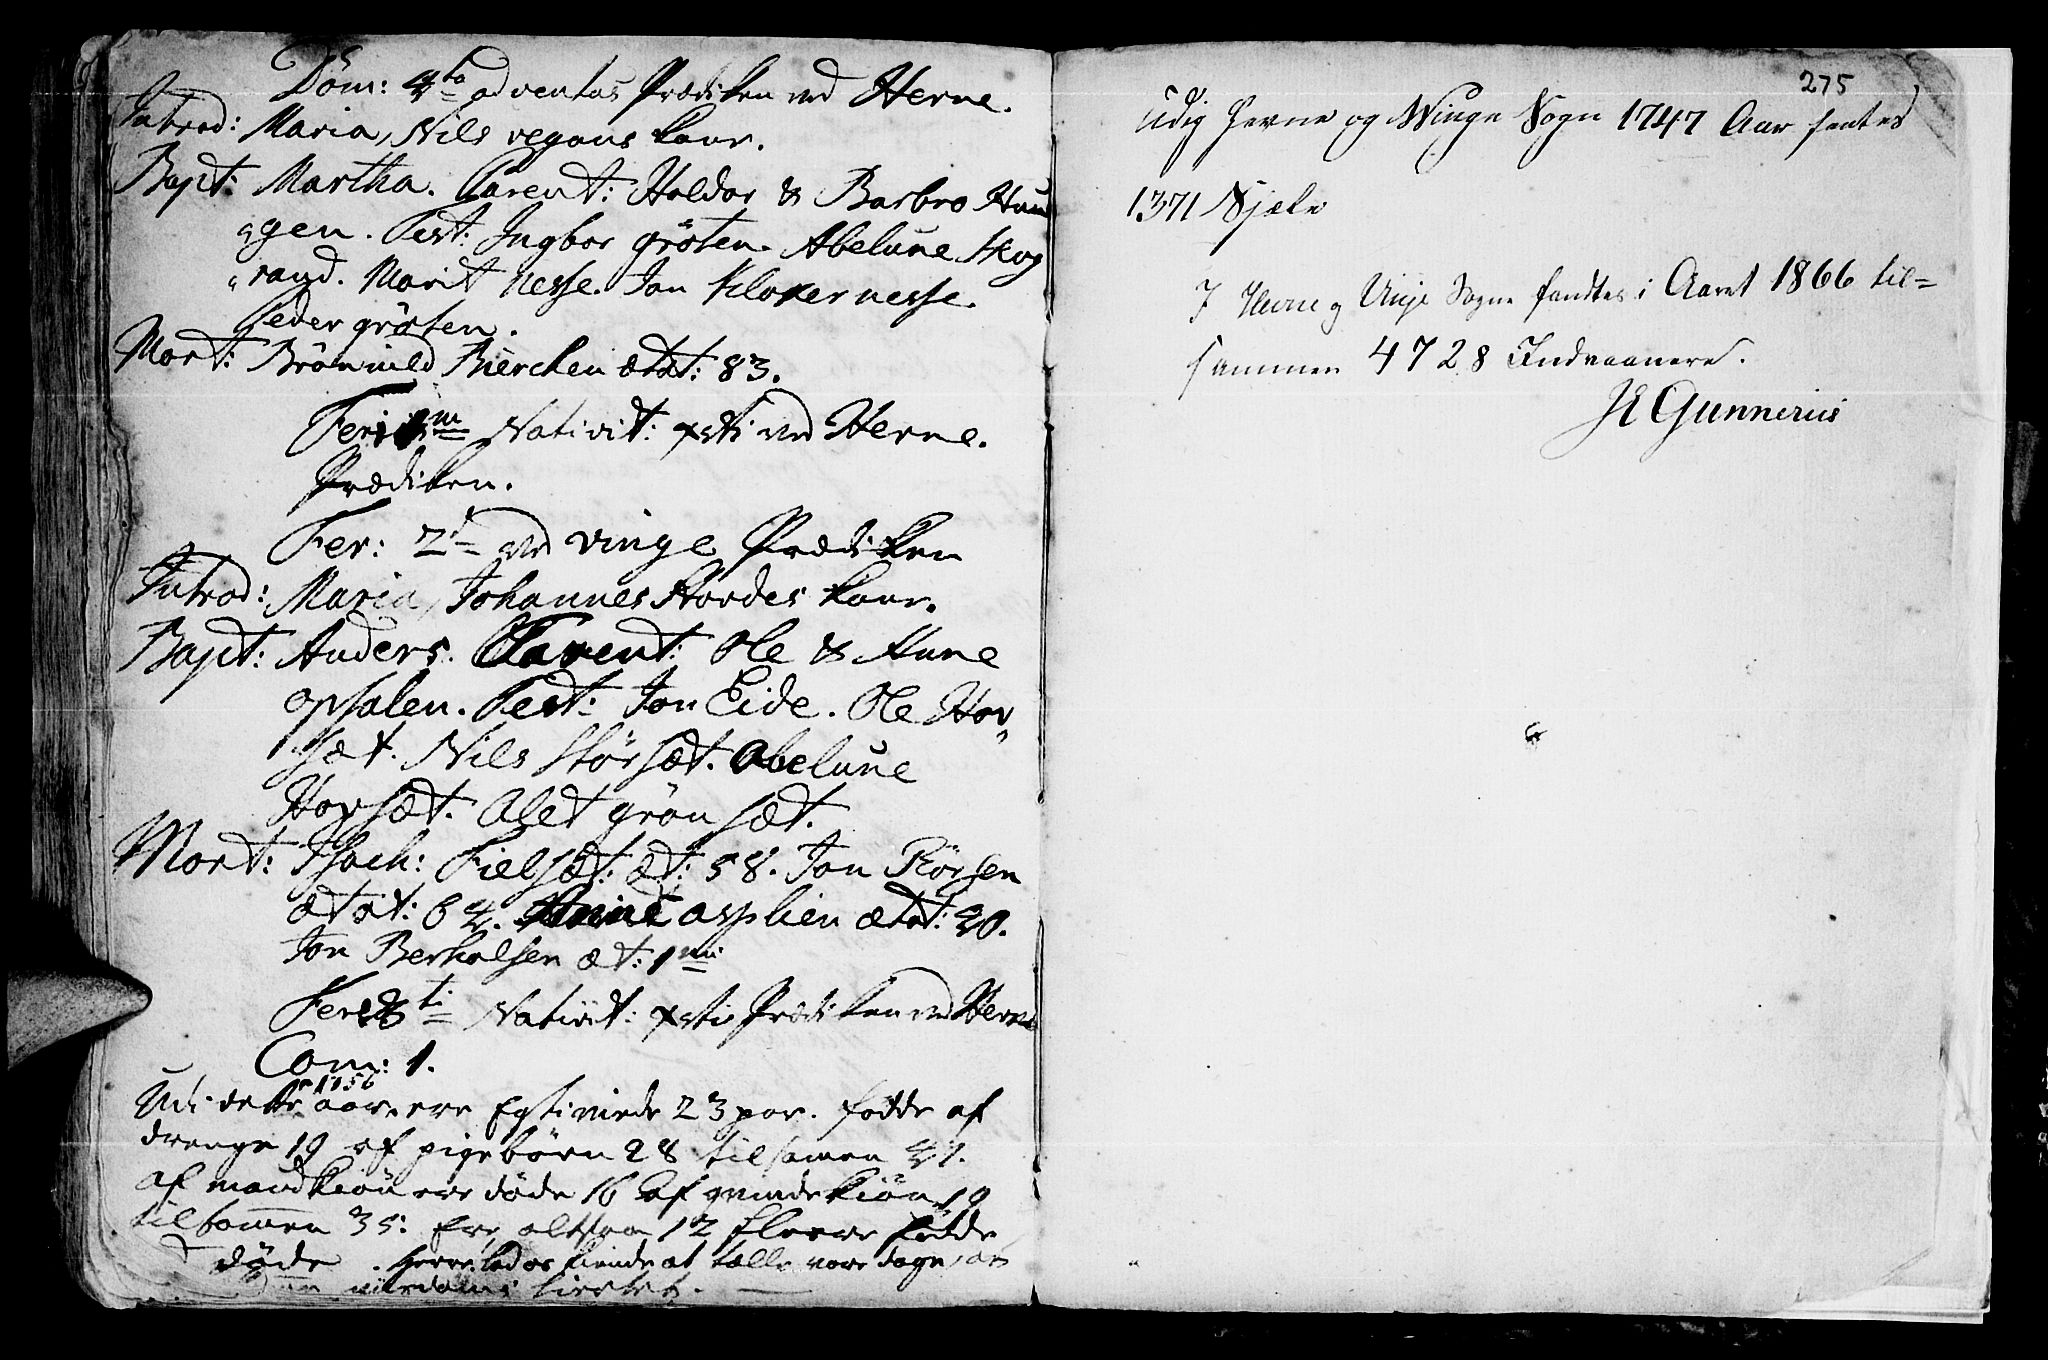 Dōm: 4to adventus Prædiken ved Herne.
Introd: Maria, Nils vegans kone.
Bapt: Martha. Parent: Haldor & Barbro Hun
gen. Test: Ingbor grøten. Abelune Skog
rand. Marit Nesse. Jon Klokernesse.
Peder grøten.
Mort: Brönnild Biercken ætat: 83.
Feri 1m Nativit: xsti ved Herne.
Prædiken.
Fer: 2d ved vinge Prædiken
Introd: Maria, Johannes Hordes kone.
Bapt: Anders. Parent: Ole & Anne
opsalen. Test: Jon Eide. Ole Hov
sæt. Nils Størsæt. Abelune
Hovsæt. Alet grönsæt.
Mort: Isach: Fielsæt: æt: 58. Jon Rörsen
ætat: 64. asplien ætat: 40.
Jon Berhalsen æt: 1 mi
Fer: 3ti Nativit: xsti Prædiken ved Herne
Com: 1.
1756
Udi dette aar ere Egteviede 23 par. fødde af
drenge 19 af pigebörn 28 tilsamen 47.
af mandkiön ere døde 16 af qvindekiön 19
tilsammen 35: Ere altsaa 12 fleere fødde
døde. Herre lad os kiende at tælle vore dage, at
viisdom i hiertet.
275
Udig Herne og Winge Sogn 1747 Aar fantes
1371 Sjæle
I Hevne og Vinje Sogne fandtes i Aaret 1866 til=
sammen 4728 Indvaanere.
JE Gunnerius